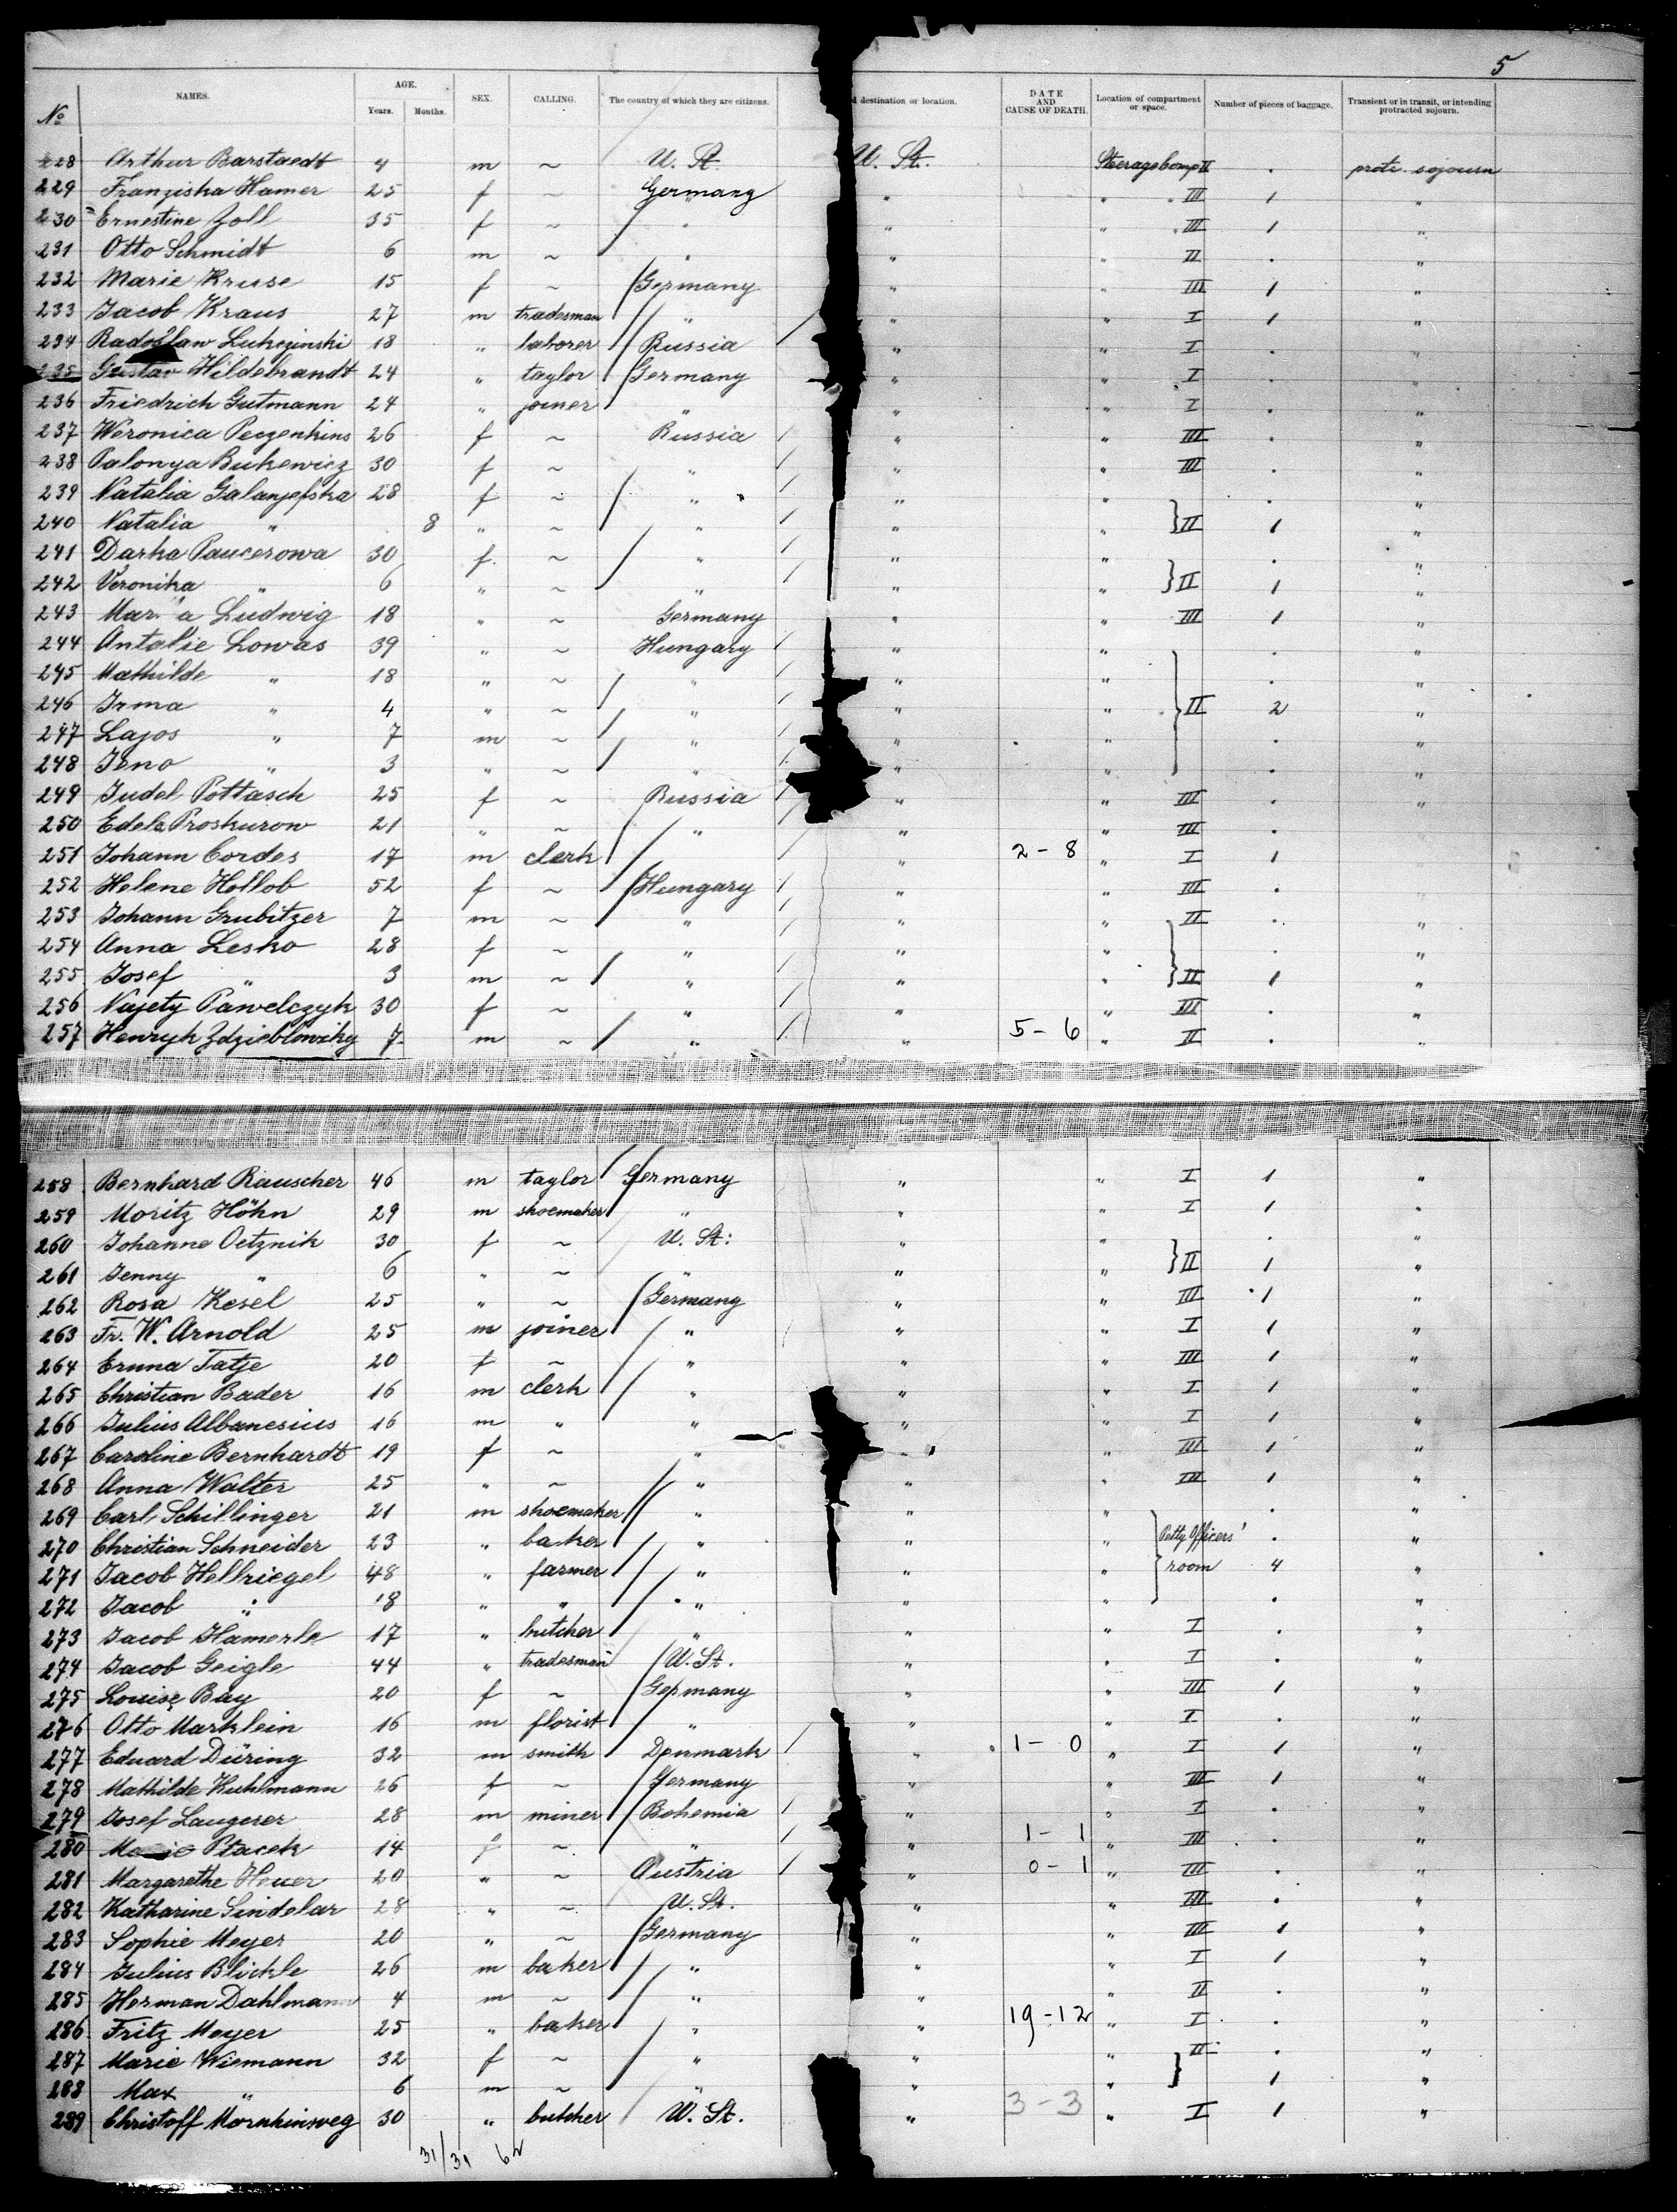 5
No NAMES. AGE. Years. Months. SEX. CALLING. The country of which they are citizens. d destination or location. DATE AND CAUSE OF DEATH. Location of compartment or space. Number of pieces of baggage. Transient or in transit, or intending protracted sojourn.
228 Arthur Barstaedt 4 m ~ U. St. U. St. Steerage Comp II . protr. sojourn
229 Franziska Hamer 25 f ~ Germany " " III 1 "
230 Ernestine Zoll 35 f ~ " " " III 1 "
231 Otto Schmidt 6 m ~ " " " II . "
232 Marie Kruse 15 f ~ Germany " " III 1 "
233 Jacob Kraus 27 m tradesman " " " I 1 "
234 Radoslaw Lukczinski 18 " laborer Russia " " I . "
235 Gustav Hildebrandt 24 " taylor Germany " " I . "
236 Friedrich Gutmann 24 " joiner " " " I . "
237 Weronica Peczenkins 26 f ~ Russia " " III . "
238 Palonya Bukewicz 30 f ~ " " " III . "
239 Natalia Galanjefska 28 f ~ " " " . "
240 Natalia " 8 " ~ " " " II 1 "
241 Darka Paucerowa 30 f. ~ " " " . "
242 Veronika " 6 " ~ " " " II 1 "
243 Mar a Ludwig 18 " ~ Germany " " III 1 "
244 Antalie Lowas 39 " ~ Hungary " " . "
245 Mathilde " 18 " ~ " " " . "
246 Irma " 4 " ~ " " " II 2 "
247 Lajos " 7 m ~ " " " . "
248 Jeno " 3 " ~ " " " . "
249 Judel Pottasch 25 f ~ Russia " " III . "
250 Edela Proskurow 21 " ~ " " " III .
251 Johann Cordes 17 m clerk " 2-8 " I 1
252 Helene Hollob 52 f ~ Hungary " " III .
253 Johann Grubitzer 7 m ~ " " " II . "
254 Anna Lesko 28 f ~ " " " . "
255 Josef " 3 m ~ " " " II 1 "
256 Najety Pawelczyk 30 f ~ " " " III . "
257 Henryk Zdzieblowsky 7 m ~ " " 5-6 " II . "
258 Bernhard Rauscher 46 m taylor Germany " " I 1 "
259 Moritz Höhn 29 m shoemaker " " " I 1 "
260 Johanne Oetznik 30 f ~ U. St: " " . "
261 Jenny " 6 " ~ " " " II 1 "
262 Rosa Kesel 25 " ~ Germany " " III 1 "
263 Fr. W. Arnold 25 m joiner " " " I 1 "
264 Emma Tatje 20 f ~ " " " III 1 "
265 Christian Bader 16 m clerk " " " I 1 "
266 Julius Albanesius 16 m " " " " I 1 "
267 Caroline Bernhardt 19 f ~ " " " III 1 "
268 Anna Walter 25 " ~ " " " III 1 "
269 Carl Schillinger 21 m shoemaker " " " . "
270 Christian Schneider 23 " baker " " " Petty Officers' . "
271 Jacob Hellriegel 48 " farmer " " " room 4 "
272 Jacob " 18 " " " " " . "
273 Jacob Hamerle 17 " butcher " " " I . "
274 Jacob Geigle 44 " tradesman U. St. " " I . "
275 Louise Bay 20 f ~ Germany " " III 1 "
276 Otto Marklein 16 m florist " " " I . "
277 Eduard Düring 32 m smith Denmark " 1-0 " I 1 "
278 Mathilde Kuhlmann 26 f ~ Germany " " III 1 "
279 Josef Laugeser 28 m miner Bohemia " " I . "
280 Marie Ptacek 14 f ~ " " 1-1 " III . "
281 Margarethe Heuer 20 " ~ Austria " 0-1 " III . "
282 Katharine Sindelar 28 " ~ U. St. " " III . "
283 Sophie Meyer 20 " ~ Germany " " III 1 "
284 Julius Blickle 26 m baker " " " I 1 "
285 Herman Dahlmann 4 m ~ " " " II . "
286 Fritz Meyer 25 " baker " " 19-12 " I . "
287 Marie Wiemann 32 f ~ " " " II . "
288 Max " 6 m ~ " " " 1 "
289 Christoff Mornhinweg 30 " butcher U. St. " 3-3 " I 1 "
31/31 62